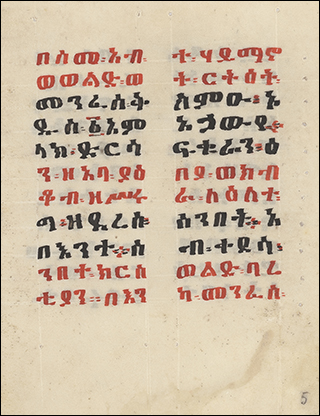 በስመ፡አብ
ወወልድ፡ወ
መንፈስ፡ቅ
ዱ፡ስ፩አም
ላክ፡ድርሳ
ን፡ዘአባ፡ያዕ
ቆብ፡ዘሥሩ
ግ፡ዘደረሰ
በእንተ፡ሰ
ንበተ፡ክርስ
ቲያን፡፡በእን
ተ፡ሃይማኖ
ት፡ርትዕት
ስምዑ፡ኦ
አኃው፡
ፍቁራን፡ዕ
በየ፡ወክብ
ራ፡ለዕለተ፡
ሰንበት፡አ
ብ፡ቀደሳ፡
ወልድ፡ባረ
ካ፡መንፈስ
5